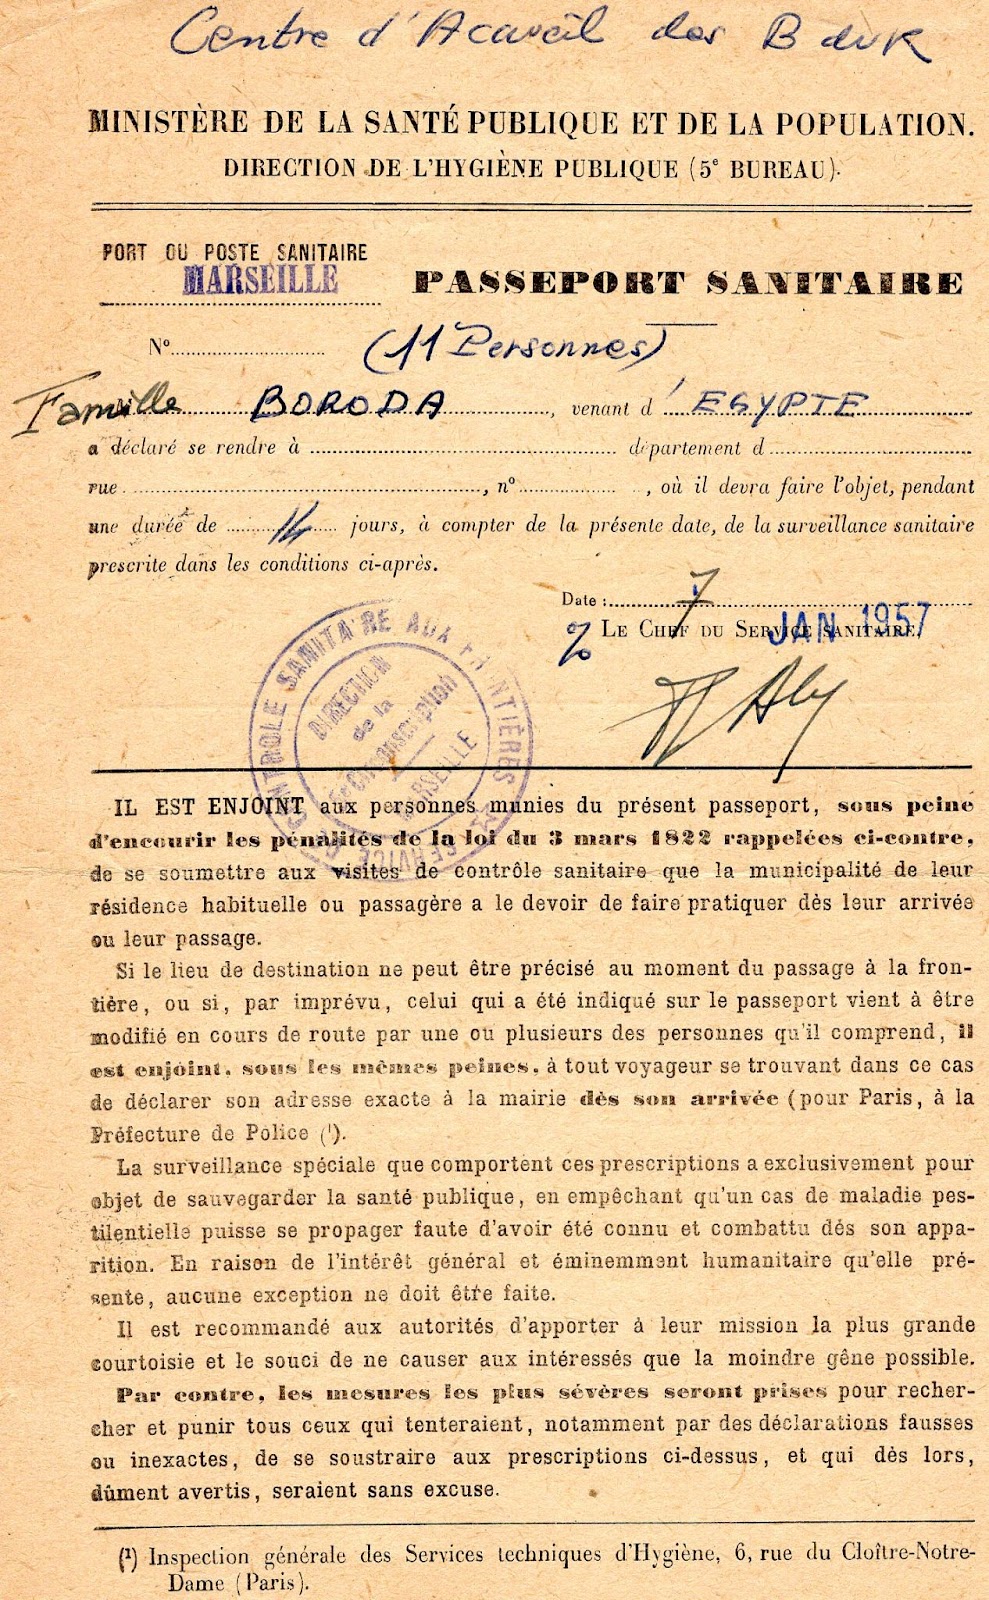 Centre d'Acaueil des B du R
MINISTÈRE DE LA SANTÉ PUBLIQUE ET DE LA POPULATION.
DIRECTION DE L'HYGIÈNE PUBLIQUE (5e BUREAU).
PORT OU POSTE SANITAIRE
MARSEILLE
PASSEPORT SANITAIRE
No
(11 Personnes)
Famille BORODA, venant d'EGYPTE
a déclaré se rendre à département d
rue , no , où il devra faire l'objet, pendant
une durée de 14 jours, à compter de la présente date, de la surveillance sanitaire
prescrite dans les conditions ci-après.
Date : 7 JAN 1957
LE CHEF DU SERVICE SANITAIRE,
CONTROLE SANITAIRE AUX FRONTIÈRES
SERVICE
DIRECTION
de la
Circonscription
MARSEILLE
IL EST ENJOINT aux personnes munies du présent passeport, sous peine
d'encourir les pénalités de la loi du 3 mars 1822 rappelées ci-contre,
de se soumettre aux visites de contrôle sanitaire que la municipalité de leur
résidence habituelle ou passagère a le devoir de faire pratiquer dès leur arrivée
ou leur passage.
Si le lieu de destination ne peut être précisé au moment du passage à la fron-
tière, ou si, par imprévu, celui qui a été indiqué sur le passeport vient à être
modifié en cours de route par une ou plusieurs des personnes qu'il comprend, il
est enjoint, sous les mêmes peines, à tout voyageur se trouvant dans ce cas
de déclarer son adresse exacte à la mairie dès son arrivée (pour Paris, à la
Préfecture de Police (1).
La surveillance spéciale que comportent ces prescriptions a exclusivement pour
objet de sauvegarder la santé publique, en empêchant qu'un cas de maladie pes-
tilentielle puisse se propager faute d'avoir été connu et combattu dès son appa-
rition. En raison de l'intérêt général et éminemment humanitaire qu'elle pré-
sente, aucune exception ne doit être faite.
Il est recommandé aux autorités d'apporter à leur mission la plus grande
courtoisie et le souci de ne causer aux intéressés que la moindre gêne possible.
Par contre, les mesures les plus sévères seront prises pour recher-
cher et punir tous ceux qui tenteraient, notamment par des déclarations fausses
ou inexactes, de se soustraire aux prescriptions ci-dessus, et qui dès lors,
dûment avertis, seraient sans excuse.
(1) Inspection générale des Services techniques d'Hygiène, 6, rue du Cloître-Notre-
Dame (Paris).